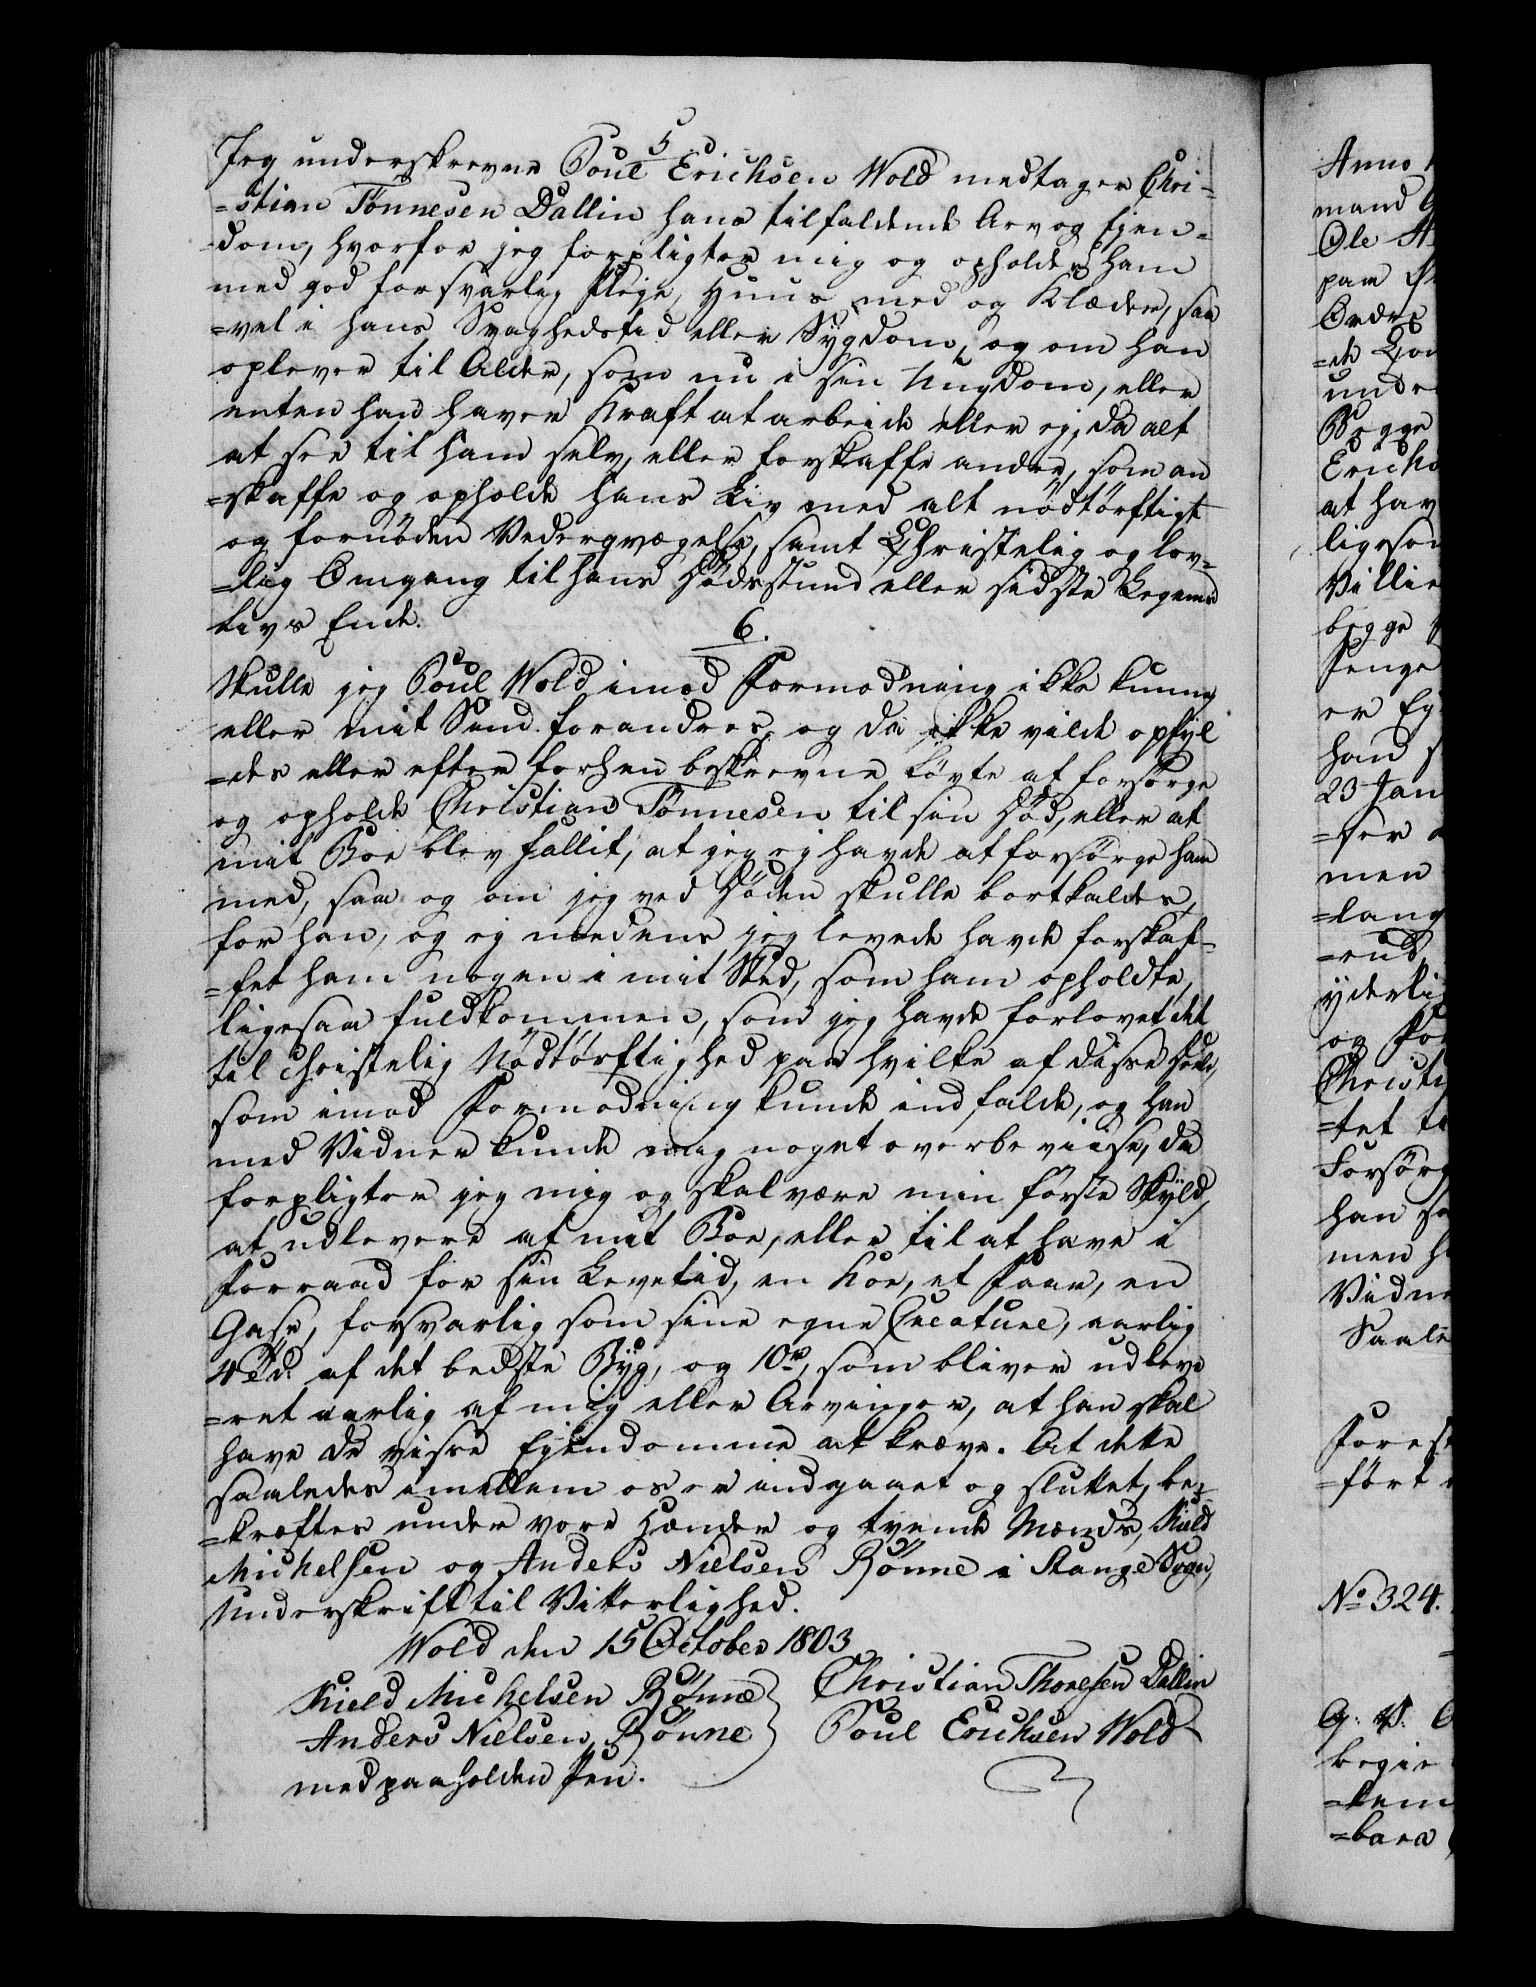 5
Jeg underskrevne Poul Erichsen Wold modtager Chri-
=stian Tönnesen Dallin hans tilfaldende Arv og Ejen=
=dom, hvorfor jeg forpligter mig og opholder ham
med god forsvarlig Pleje, Huus, mad og Klæder, saa
=vel i hans Svaghedstid eller Sygdom, og om han
oplever til Alder, som nu i sin Ungdom, eller
enten han haver Kraft at arbeide eller ej, da alt
at see til ham selv, eller forskaffe andre, som an
=skaffe og opholde hans Liv med alt nödtörftigt
og fornöden Vedergvægelse, samt Christelig og lov=
=lig Omgang til hans Dödsstund eller sidste Legems
Livs Ende.
6.
Skulle jeg Poul Wold imod Formodning ikke kunne
eller mit Sind forandres, og da ikke vilde opfyl
=des eller efter forhen beskrevne Löfte at forsörge
og opholde Christian Tönnesen til sin Död, eller at
mit Boe blev fallit, at jeg ej havde at forsörge ham
med, saa og om jeg ved Döden skulle bortkaldes,
for han, og ej medens jeg levede havde forskaf=
=fet ham nogen i mit Sted, som ham opholdte,
ligesaa fuldkommen, som jeg havde forlovet det
til christelig Nödtörftighed paa hvilke af disse
som imod Formodning kunde indfalde, og han
med Vidner kunde mig noget overbeviise, da
forpligter jeg mig og skal være min förste Skyld,
at udlevere af mit Boe, eller til at have i
Forraad for sin Levetid, en Koe, et Faar, en
Gase, forsvarlig som sine egne Creature, aarlig
4 Td. af det bedste Byg, og 10 rd, som bliver udleve
=ret aarlig af mig eller Arvinger, at han skal
have de visse Ejendomme at kræve. At dette
saaledes imellem os er indgaaet og sluttet, be=
=kræftes under vore Hænder og tvende Mænds, Kield
Michelsen og Anders Nielsen Rönne i Stange Sogn,
Underskrift til Vitterlighed.
Wold den 15 October 1803
Kield Michelsen Rönne Christian Thonesen Dallin
Anders Nielsen Rönne Poul Erichsen Wold
med paaholden Pen.
Anno
mand
Ole
paa
Ordre
=de
under
Begge
Erichs
at hav
ligeson
Villie
begge
Penge
er Eg
han
23 Jan
=ser
men
=lang
=rud
yderli
og For
Christi
=tet
Forsörg
han
men
Vidne
Saale
Forest
=fört
No 324.
begie
=tem
=bara